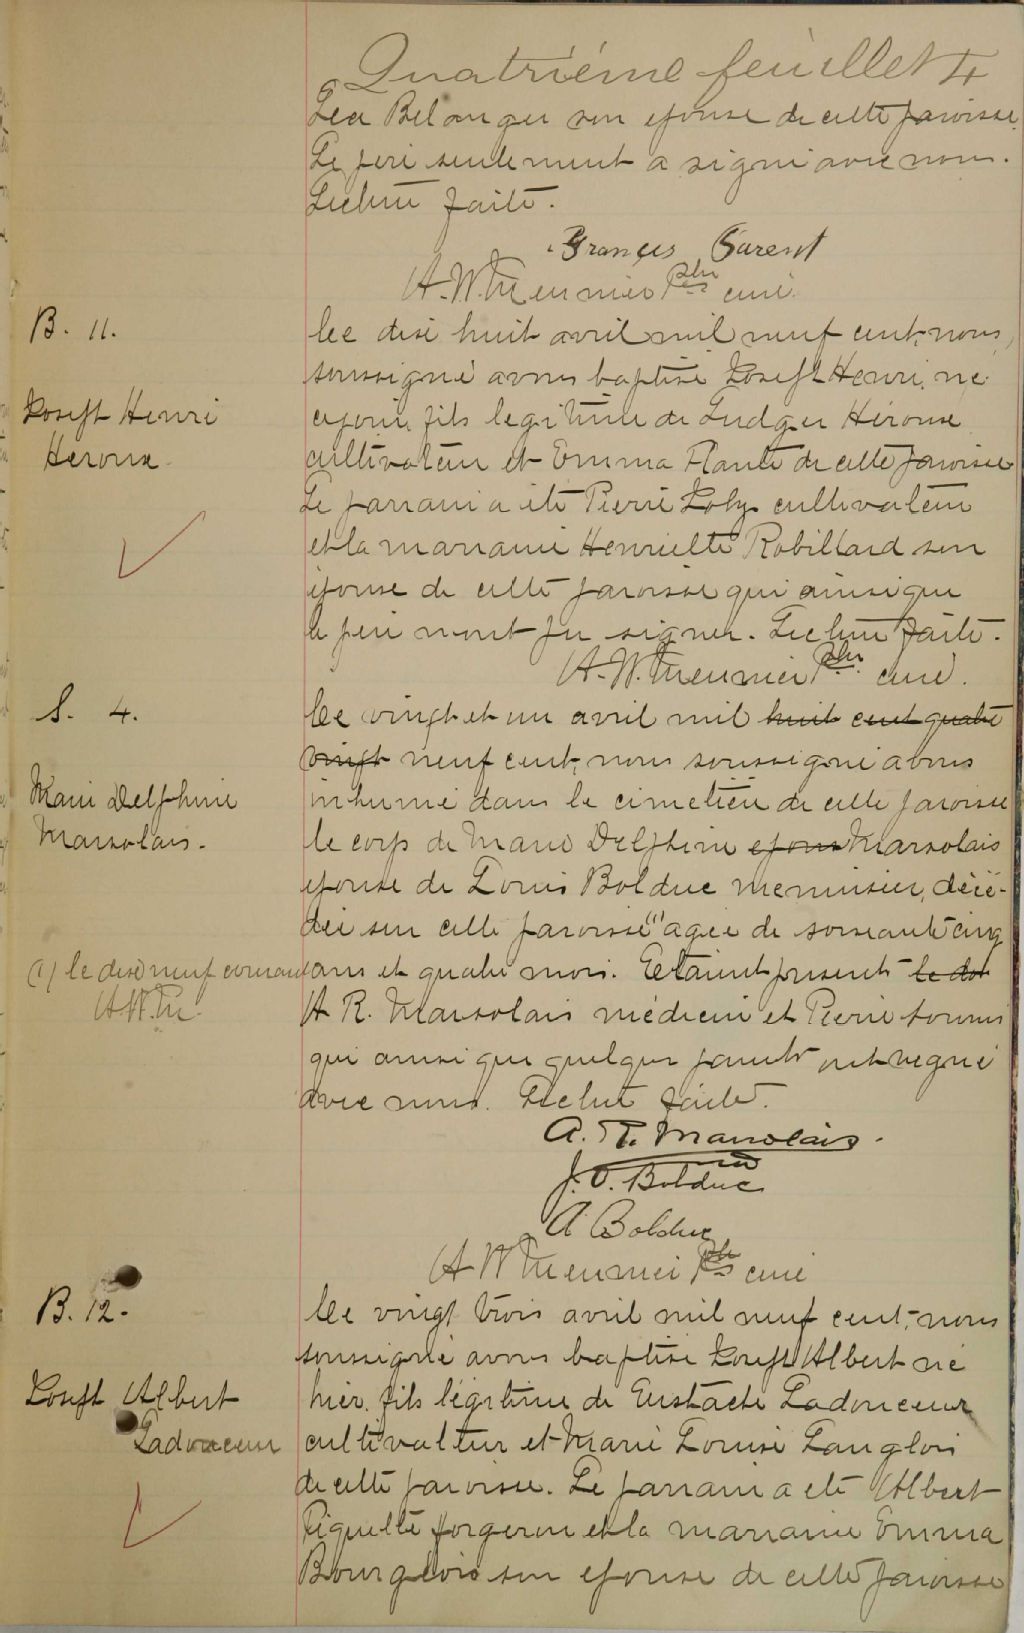 Quatrième feuillet 4
Léa Belanger son epouse de cette paroisse.
Le père seulement a signé avec nous.
Lecture faite.
Francis Parent
A. W. Meunier Ptre curé.
B. 11.
Joseph Henri
Heroux
Ce dixhuit avril mil neuf cent, nous,
soussigné avons baptisé Joseph Henri, né
ce jour, fils legitime de Ludger Héroux
cultivateur et Emma Plante de cette paroisse
Le parrain a été Pierre Joly cultivateur
et la marraine Henriette Robillard son
épouse de cette paroisse qui ainsi que
le père n'ont pu signer. Lecture faite.
A. W. Meunier Ptre. curé.
S. 4.
Marie Delphine
Marsolais.
Ce vingt et un avril mil huit cent quatre
vingt neuf cent, nous soussigné avons
inhumé dans le cimetière de cette paroisse
le corps de Marie Delphine epouse Marsolais
epouse de Louis Bolduc menuisier, décé-
dée en cette paroisse (1) agée de soixante cinq
(1) le dixneuf courant
A.W.M.
ans et quatre mois. Etaient présents
A R. Marsolais médecin et Pierre
qui ainsi que quelques parents ont signé
avec nous. Lecture faite.
A. R. Marsolais.
J. O. Bolduc
A Bolduc
A W Meunier Ptre curé
B. 12.
Joseph Albert
Ladouceur
Ce vingt trois avril mil neuf cent, nous
soussigné avons baptisé Joseph Albert né
hier, fils légitime de Eustache Ladouceur
cultivateur et Marie Louise Langlois
de cette paroisse. Le parrain a été Albert
Piquette forgeron et la marraine Emma
Bourgeois son epouse de cette paroisse